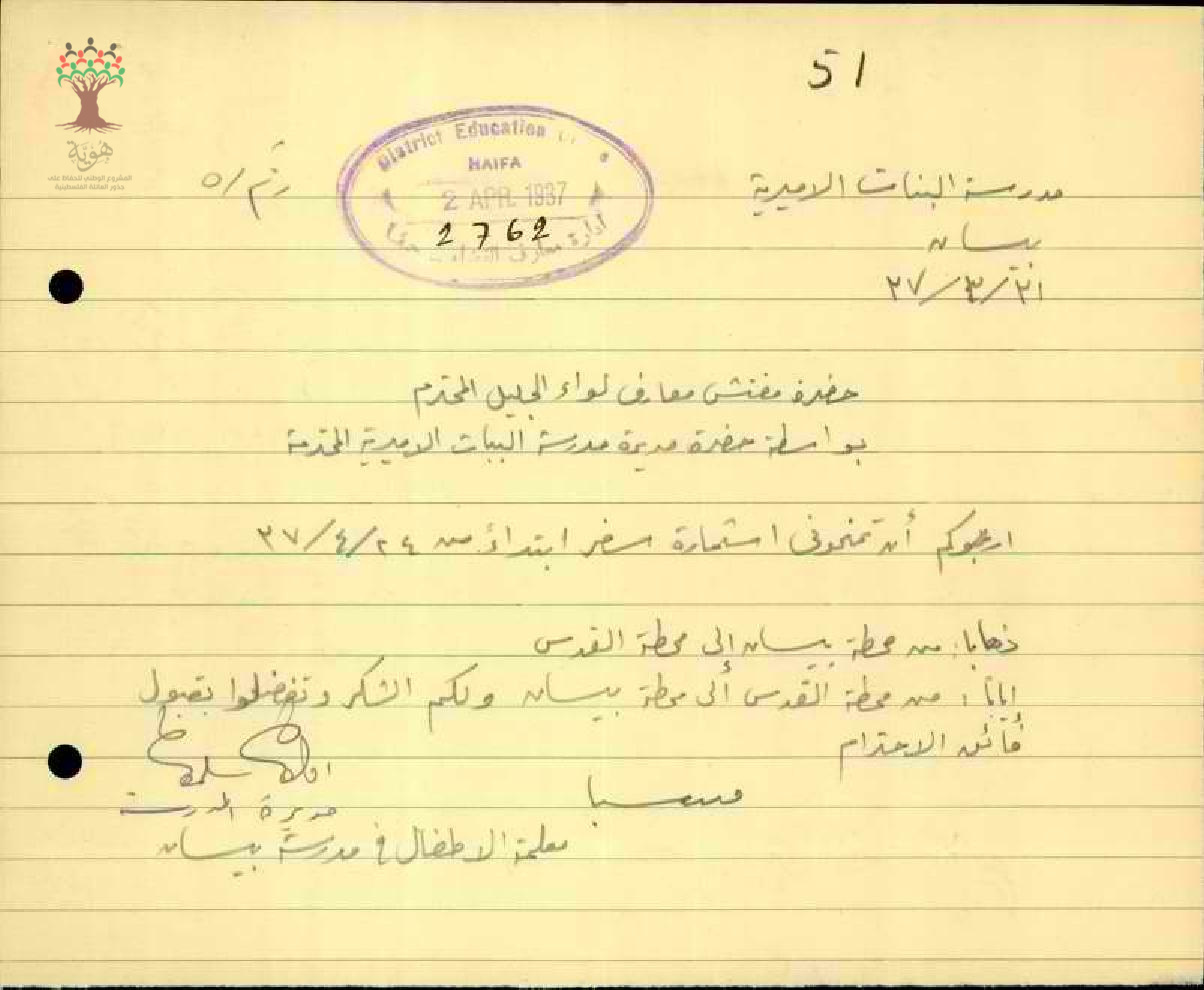 51
هوية
المشروع الوطني للحفاظ على
جذور العائلة الفلسطينية
District Education
HAIFA
2 APR 1937
2762
ادارة معارف
رقم /٥
مدرسة البنات الاميرية
بيسان
٣١/٣/٣٧
حضرة مفتش معارف لواء الجليل المحترم
بواسطة حضرة مديرة مدرسة البنات الاميرية المحترمة
ارجوكم أن تمنحوني استمارة سفر ابتداءً من ٢٤/٤/٣٧
ذهابا: من محطة بيسان إلى محطة القدس
ايابا: من محطة القدس ألى محطة بيسان ولكم الشكر وتفضلوا بقبول
فائق الاحترام
مديرة المدرسة
معلمة الاطفال في مدرسة بيسان